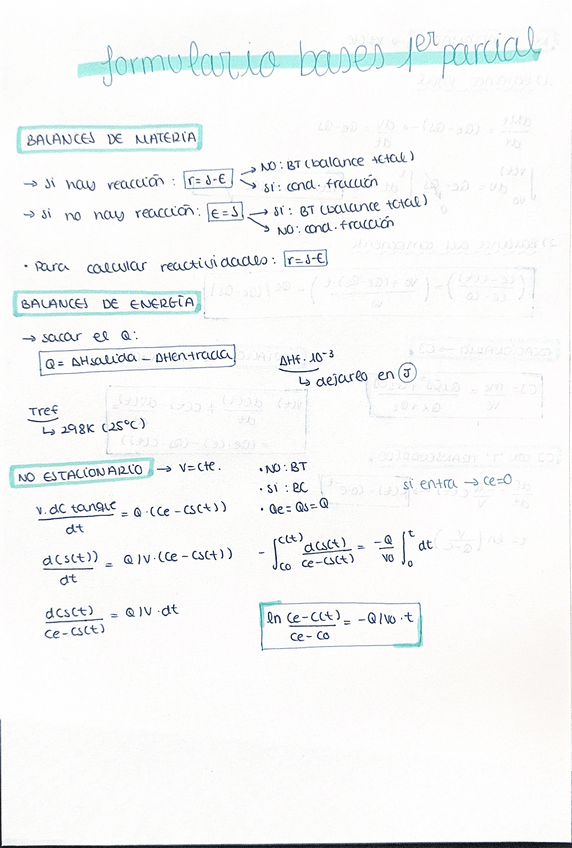 formulario bases 1er parcial
BALANCES DE MATERIA
→ si hay reacción: r=S-E → NO: BT (balance total)
→ SÍ: cond. fracción
→ si no hay reacción: E=S → SÍ: BT (balance total)
→ NO: cond. fracción
• Para calcular reactividades: r=S-E
BALANCES DE ENERGÍA
→ sacar el Q:
Q = ΔHsalida - ΔHentrada
ΔHf · 10⁻³
↳ dejarlo en J
Tref
↳ 298K (25ºC)
NO ESTACIONARIO → V=cte.
• NO: BT
• SÍ: BC
• Qe=Qs=Q
si entra → ce=0
V·dC tanque/dt = Q·(Ce-Cs(t))
d(Cs(t))/dt = Q/V·(Ce-Cs(t))
-∫_{C0}^{C(t)} dCs(t)/(Ce-Cs(t)) = -Q/V0 ∫_0^t dt
dCs(t)/(Ce-Cs(t)) = Q/V·dt
ln (Ce-C(t))/(Ce-C0) = -Q/V0·t